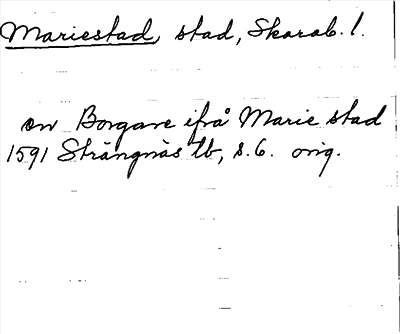 Mariestad stad, Skarab. l.
en Borgare ifrå Marie stad
1591 Strängnäs tb, s. 6. orig.